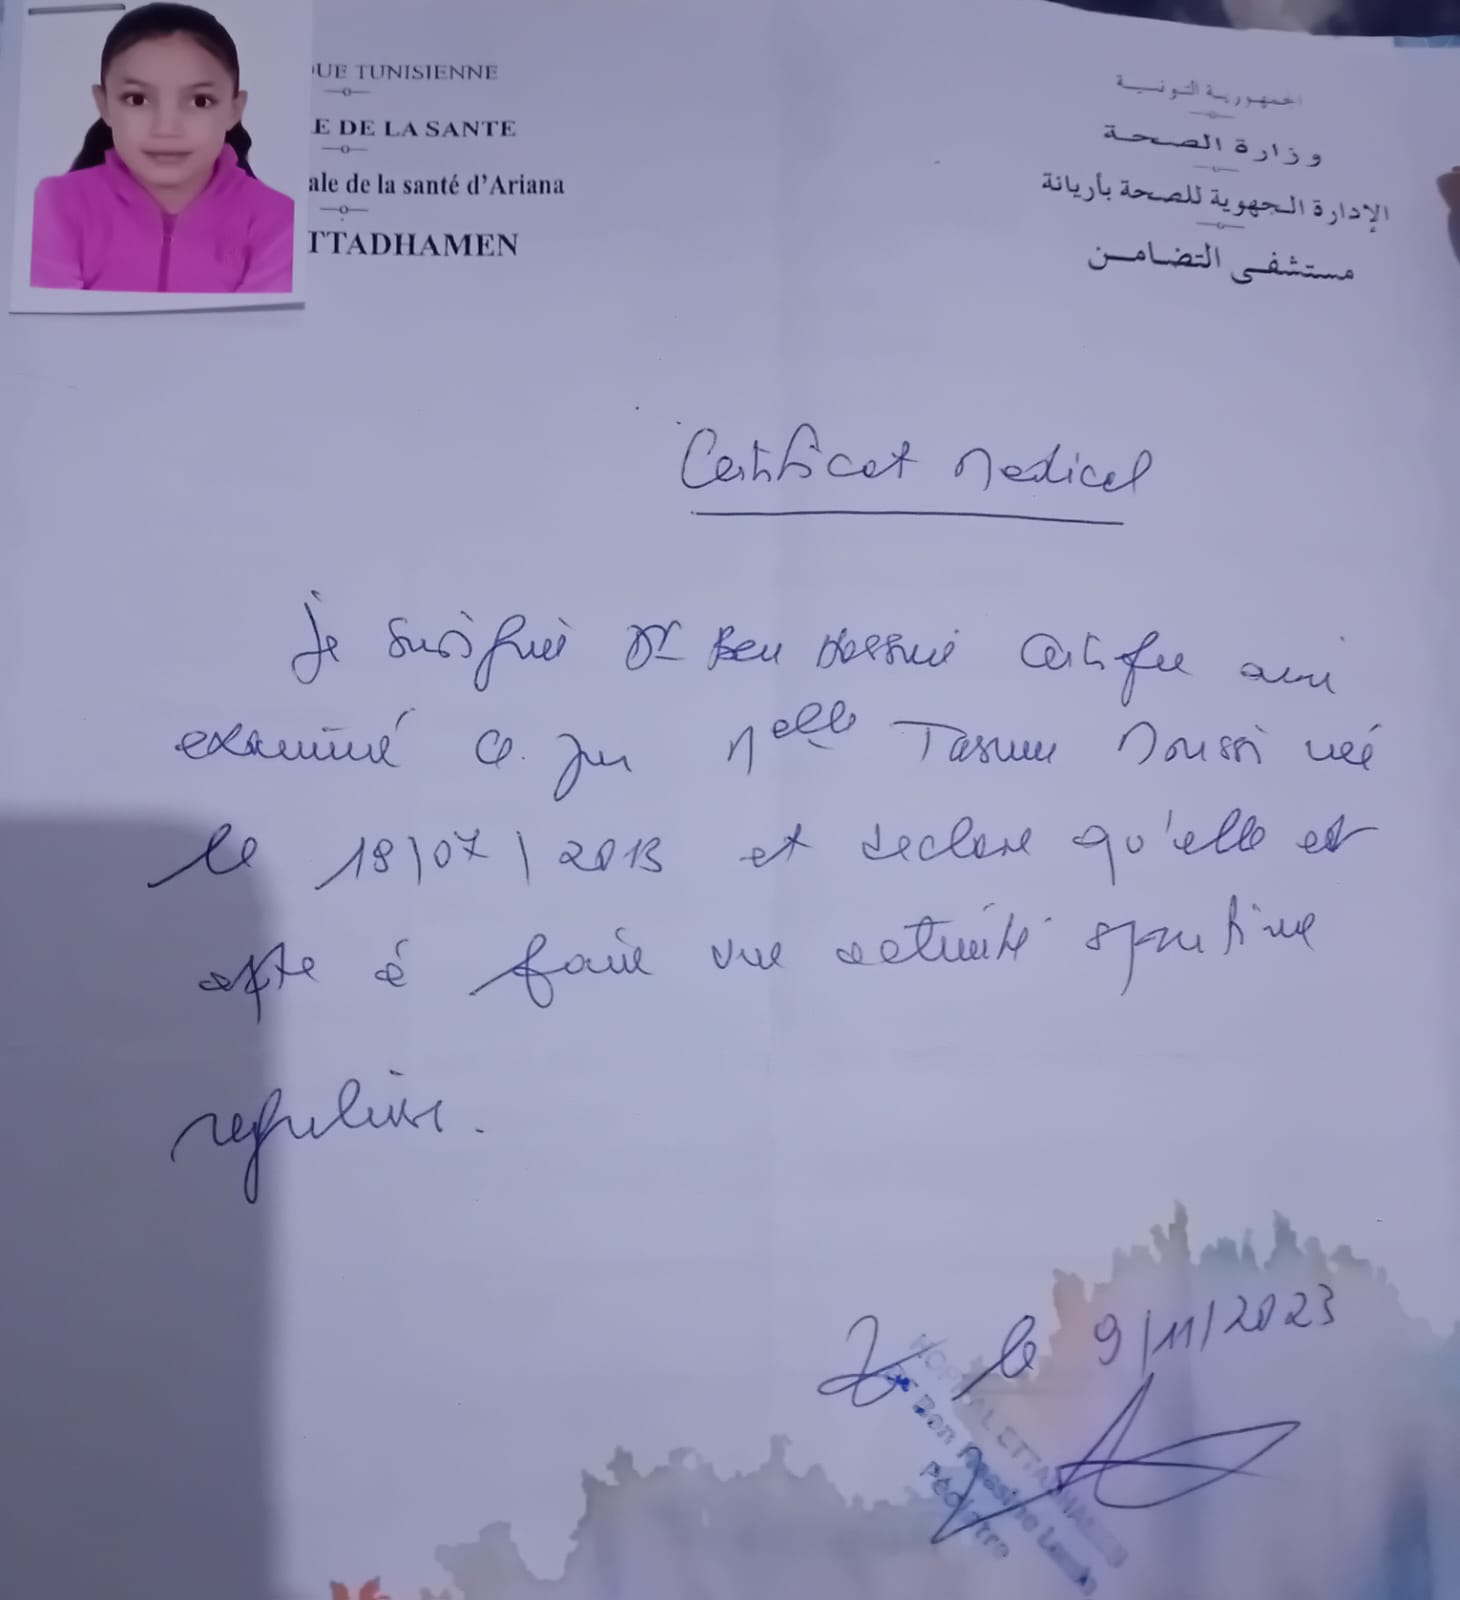 UE TUNISIENNE
E DE LA SANTE
ale de la santé d'Ariana
TTADHAMEN
الجمهورية التونسية
وزارة الصحة
الإدارة الجهوية للصحة بأريانة
مستشفى التضامن
Certificat Medical
Je soussigné Dr Ben Hassine Certifie avoir
examiné ce jour Melle Tasnim Moussi née
le 18/07/2013 et declare qu'elle est
apte à faire une activité sportive
regulière.
le 9/11/2023
HOPITAL ETTADHAMEN
Dr Ben Hassine
Pédiatre